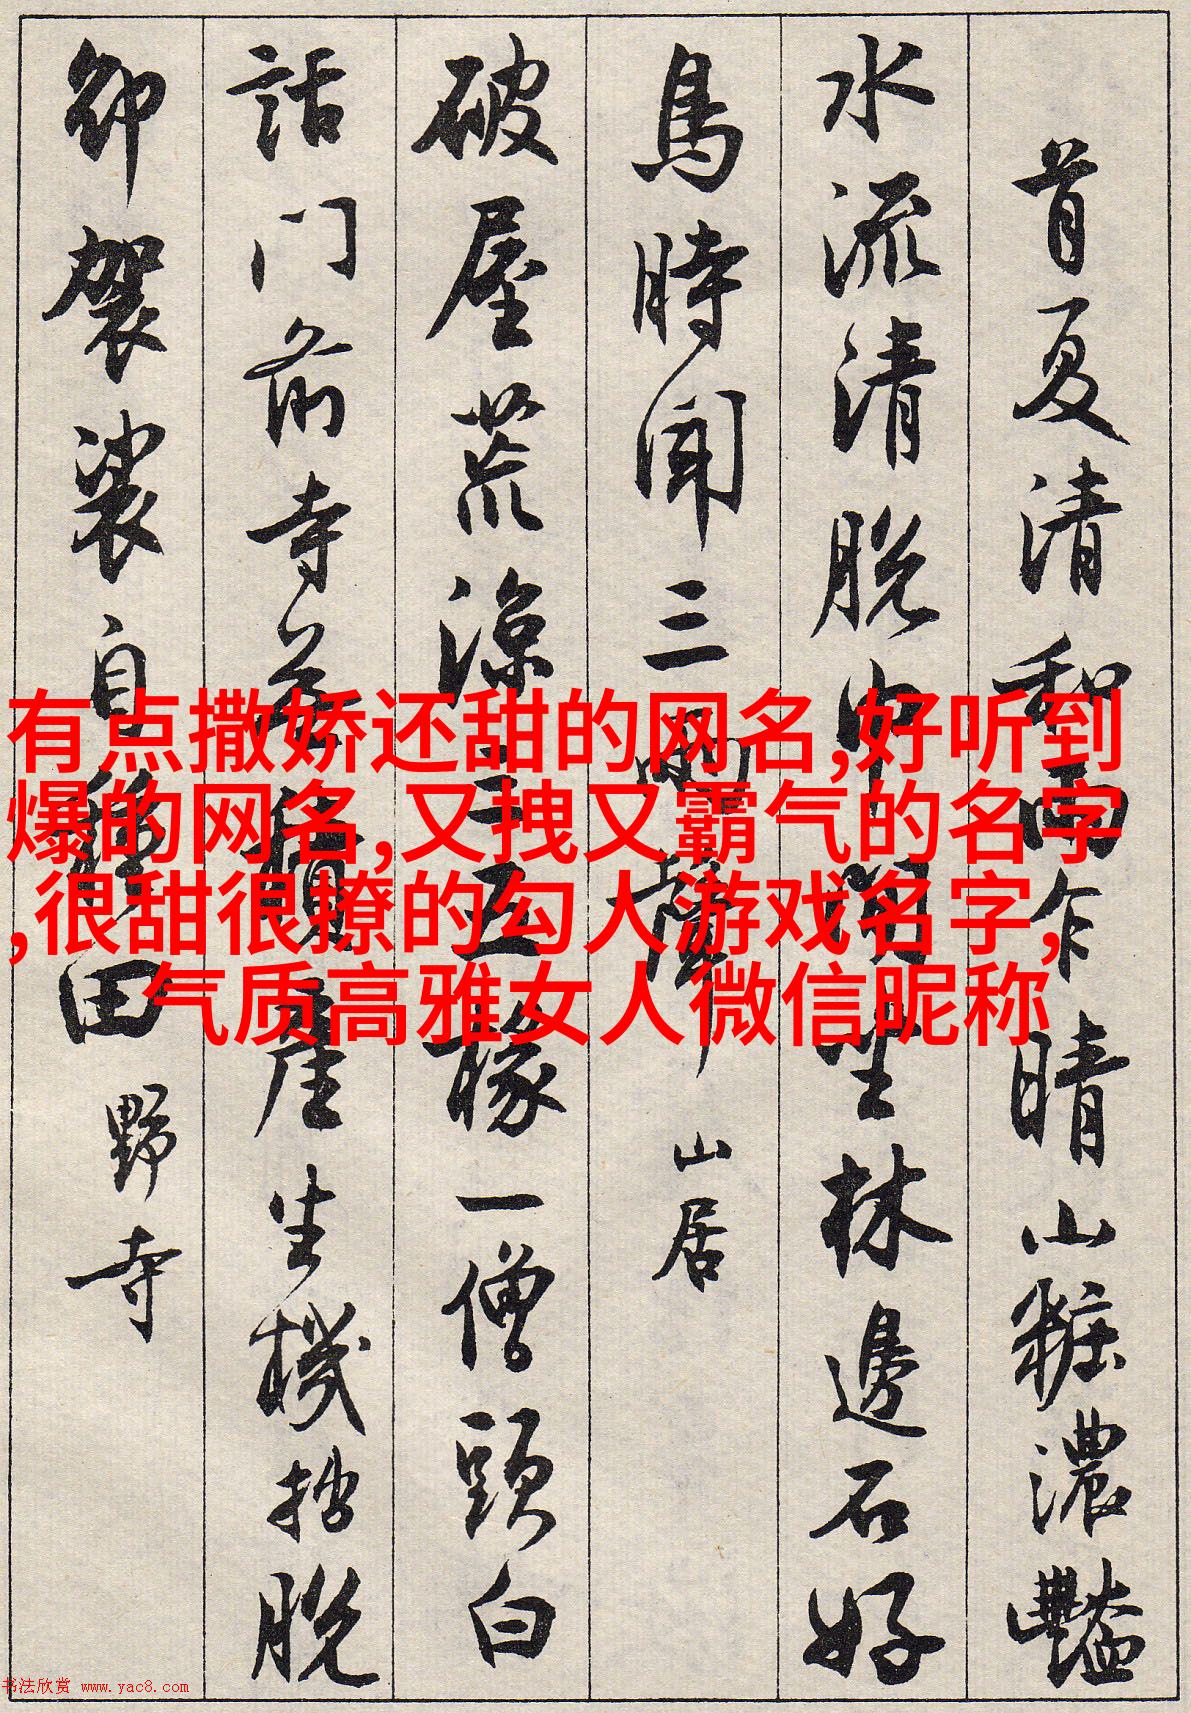 首夏清和雨乍晴山粧濃豔
水流清脱巾閒坐林邊石好
鳥時聞三兩聲 山居
破屋荒涼三五椽一僧頭白
話门前寺積產生機拙脱
卻袈裟自種田 野寺
有点撒娇还甜的网名,好听到
爆的网名,又拽又霸气的名字
,很甜很撩的勾人游戏名字,
气质高雅女人微信昵称
书法欣赏 www.yac8.com